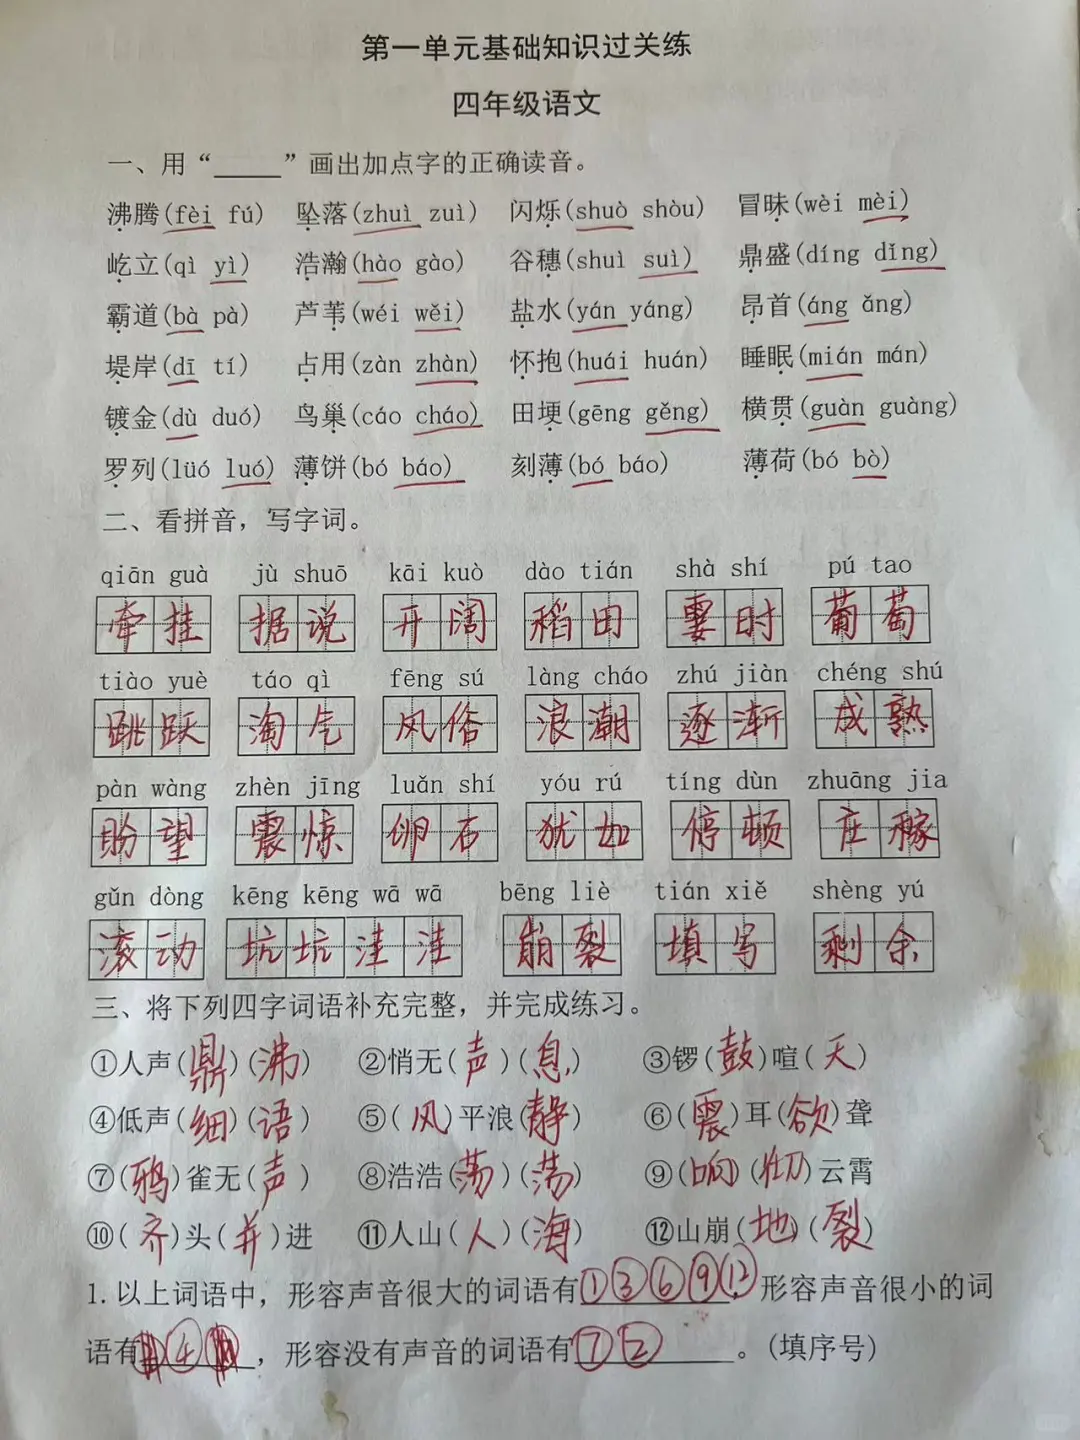 第一单元基础知识过关练
四年级语文
一、用“_____”画出加点字的正确读音。
沸腾(fèi fú) 坠落(zhuì zuì) 闪烁(shuò shòu) 冒昧(wèi mèi)
屹立(qì yì) 浩瀚(hào gào) 谷穗(shuì suì) 鼎盛(díng dǐng)
霸道(bà pà) 芦苇(wéi wěi) 盐水(yán yáng) 昂首(áng ǎng)
堤岸(dī tí) 占用(zàn zhàn) 怀抱(huái huán) 睡眠(mián mán)
镀金(dù duó) 鸟巢(cáo cháo) 田埂(gēng gěng) 横贯(guàn guàng)
罗列(lüó luó) 薄饼(bó báo) 刻薄(bó báo) 薄荷(bó bò)
二、看拼音，写字词。
qiān guà jù shuō kāi kuò dào tián shà shí pú tao
牵挂 据说 开阔 稻田 霎时 葡萄
tiào yuè táo qì fēng sú làng cháo zhú jiàn chéng shú
跳跃 淘气 风俗 浪潮 逐渐 成熟
pàn wàng zhèn jīng luǎn shí yóu rú tíng dùn zhuāng jia
盼望 震惊 卵石 犹如 停顿 庄稼
gǔn dòng kēng kēng wā wā bēng liè tián xiě shèng yú
滚动 坑坑洼洼 崩裂 填写 剩余
三、将下列四字词语补充完整，并完成练习。
①人声(鼎)(沸) ②悄无(声)(息) ③锣(鼓)喧(天)
④低声(细)(语) ⑤(风)平浪(静) ⑥(震)耳(欲)聋
⑦(鸦)雀无(声) ⑧浩浩(荡)(荡) ⑨(响)(彻)云霄
⑩(齐)头(并)进 ⑪人山(人)(海) ⑫山崩(地)(裂)
1.以上词语中，形容声音很大的词语有①③⑥⑨⑫，形容声音很小的词
语有④，形容没有声音的词语有⑦②。(填序号)